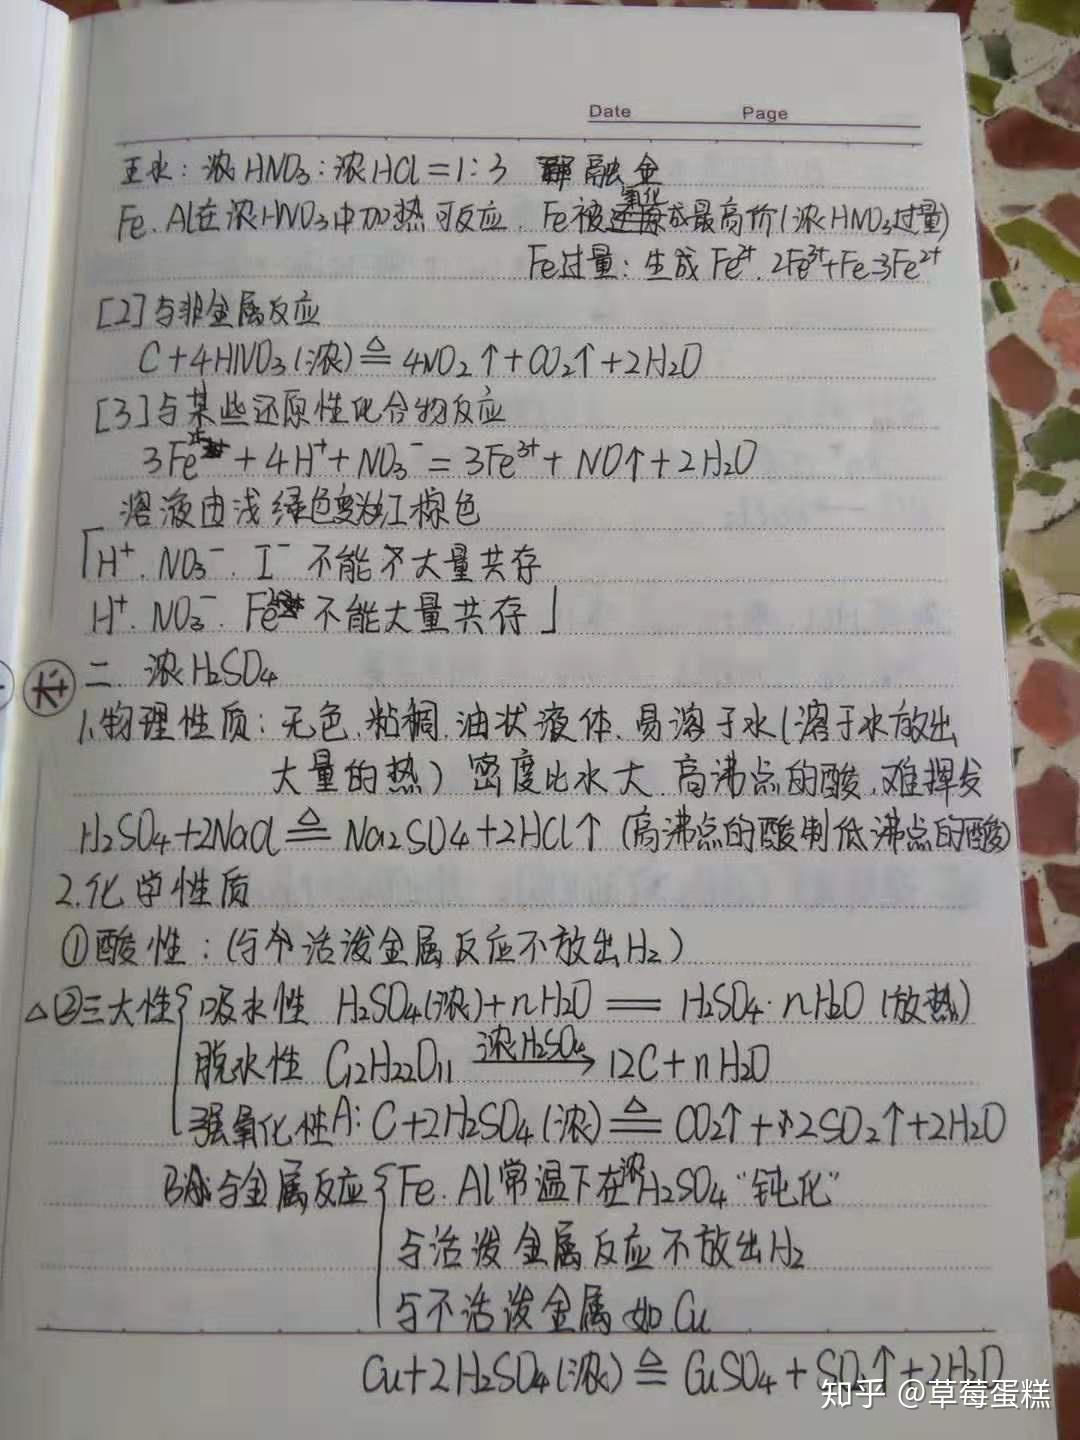 Date Page
王水：浓HNO₃：浓HCl=1:3 融金
Fe、Al在浓HNO₃中加热可反应，Fe被氧化成最高价(浓HNO₃过量)
Fe过量：生成Fe²⁺. 2Fe³⁺+Fe=3Fe²⁺
[2]与非金属反应
C+4HNO₃(浓)≜4NO₂↑+CO₂↑+2H₂O
[3]与某些还原性化合物反应
3Fe²⁺+4H⁺+NO₃⁻=3Fe³⁺+NO↑+2H₂O
溶液由浅绿色变为红棕色
「H⁺.NO₃⁻.I⁻不能大量共存
H⁺.NO₃⁻.Fe²⁺不能大量共存」
二.浓H₂SO₄
1.物理性质：无色.粘稠.油状液体.易溶于水(溶于水放出
大量的热)密度比水大.高沸点的酸,难挥发
H₂SO₄+2NaCl≜Na₂SO₄+2HCl↑(高沸点的酸制低沸点的酸)
2.化学性质
①酸性：(与活泼金属反应不放出H₂)
△②三大性{吸水性 H₂SO₄(浓)+nH₂O══H₂SO₄·nH₂O(放热)
脱水性 C₁₂H₂₂O₁₁ 浓H₂SO₄→12C+nH₂O
强氧化性A:C+2H₂SO₄(浓)≜CO₂↑+2SO₂↑+2H₂O
B与金属反应{Fe.Al常温下在浓H₂SO₄"钝化"
与活泼金属反应不放出H₂
与不活泼金属如Cu
Cu+2H₂SO₄(浓)≜CuSO₄+SO₂↑+2H₂O
知乎 @草莓蛋糕